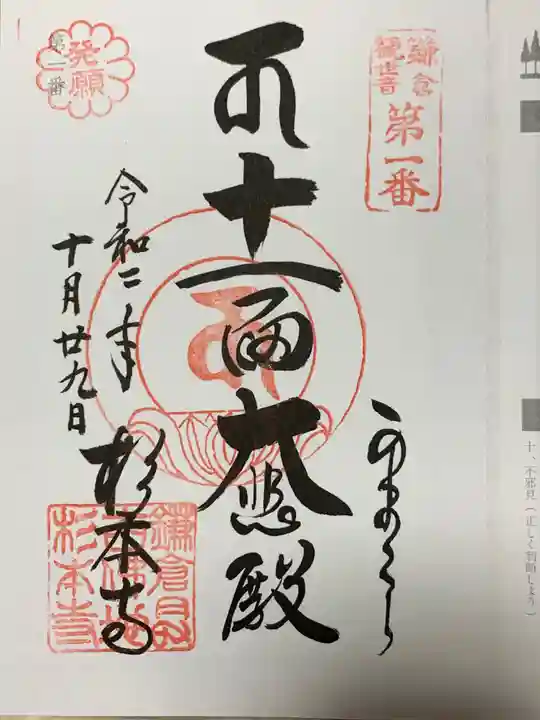 鎌倉
観世音
第一番
かまくら
十一面大悲殿
発願
第一番
令和二年
十月廿九日
杉本寺
十、不邪見（正しく判断しよう）